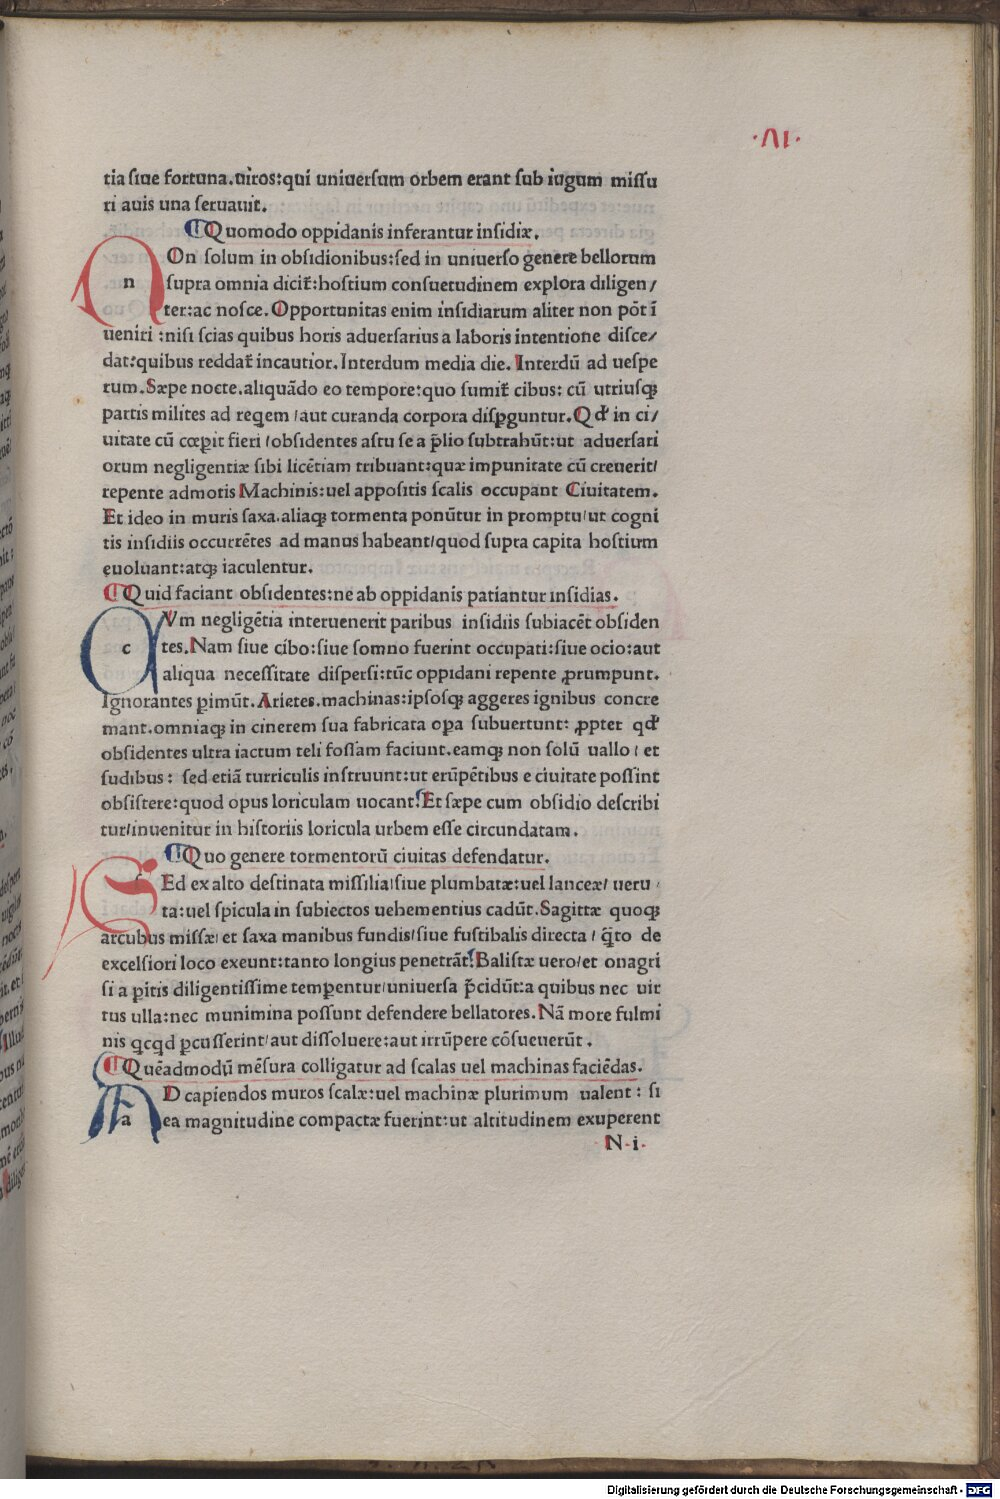 ·VI·
tia ſiue fortuna.uiros:qui uniuerſum orbem erant ſub iugum miſſu
ri auis una ſeruauit.
Quomodo oppidanis inferantur inſidiæ.
nOn ſolum in obſidionibus:ſed in uniuerſo genere bellorum
ſupra omnia dicit̃:hoſtium conſuetudinem explora diligen/
ter:ac noſce.Opportunitas enim inſidiarum aliter non põt ĩ
ueniri :niſi ſcias quibus horis aduerſarius a laboris intentione diſce/
dat:quibus reddat̃ incautior.Interdum media die.Interdũ ad ueſpe
rum.Sæpe nocte.aliquãdo eo tempore:quo ſumit̃ cibus: cũ utriuſqꝫ
partis milites ad reqem /aut curanda corpora diſꝑguntur.Qđ in ci/
uitate cũ cœꝑit fieri /obſidentes aſtu ſe a p̃lio ſubtrahũt:ut aduerſari
orum negligentiæ ſibi licẽtiam tribuant:quæ impunitate cũ creuerit/
repente admotis Machinis:uel appoſitis ſcalis occupant Ciuitatem.
Et ideo in muris ſaxa.aliaqꝫ tormenta ponũtur in promptu/ut cogni
tis inſidiis occurrẽtes ad manus habeant/quod ſupra capita hoſtium
euoluant:atqꝫ iaculentur.
Quid faciant obſidentes:ne ab oppidanis patiantur inſidias.
cVm negligẽtia interuenerit paribus inſidiis ſubiacẽt obſiden
tes.Nam ſiue cibo:ſiue ſomno fuerint occupati:ſiue ocio:aut
aliqua neceſſitate diſperſi:tũc oppidani repente ꝓrumpunt.
Ignorantes ꝑimũt.Arietes.machinas:ipſoſqꝫ aggeres ignibus concre
mant.omniaqꝫ in cinerem ſua fabricata oꝑa ſubuertunt: ꝓpter qđ
obſidentes ultra iactum teli foſſam faciunt.eamqꝫ non ſolũ uallo / et
ſudibus: ſed etiã turriculis inſtruunt:ut erũpẽtibus e ciuitate poſſint
obſiſtere:quod opus loriculam uocant.Et ſæpe cum obſidio deſcribi
tur/inuenitur in hiſtoriis loricula urbem eſſe circundatam.
Quo genere tormentorũ ciuitas defendatur.
ſEd ex alto deſtinata miſſilia/ſiue plumbatæ:uel lanceæ/ ueru
ta:uel ſpicula in ſubiectos uehementius cadũt.Sagittæ quoqꝫ
arcubus miſſæ/ et ſaxa manibus fundis/ſiue fuſtibalis directa / q̃to de
excelſiori loco exeunt:tanto longius penetrãt.Baliſtæ uero/et onagri
ſi a ꝑitis diligentiſſime temꝑentur/uniuerſa p̃cidũt:a quibus nec uir
tus ulla:nec munimina poſſunt defendere bellatores.Nã more fulmi
nis qcqd ꝑcuſſerint/aut diſſoluere:aut irrũpere cõſueuerũt.
Quẽadmodũ mẽſura colligatur ad ſcalas uel machinas faciẽdas.
aD capiendos muros ſcalæ:uel machinæ plurimum ualent: ſi
ea magnitudine compactæ fuerint:ut altitudinem exuperent
N·i·
Digitalisierung gefördert durch die Deutsche Forschungsgemeinschaft - DFG